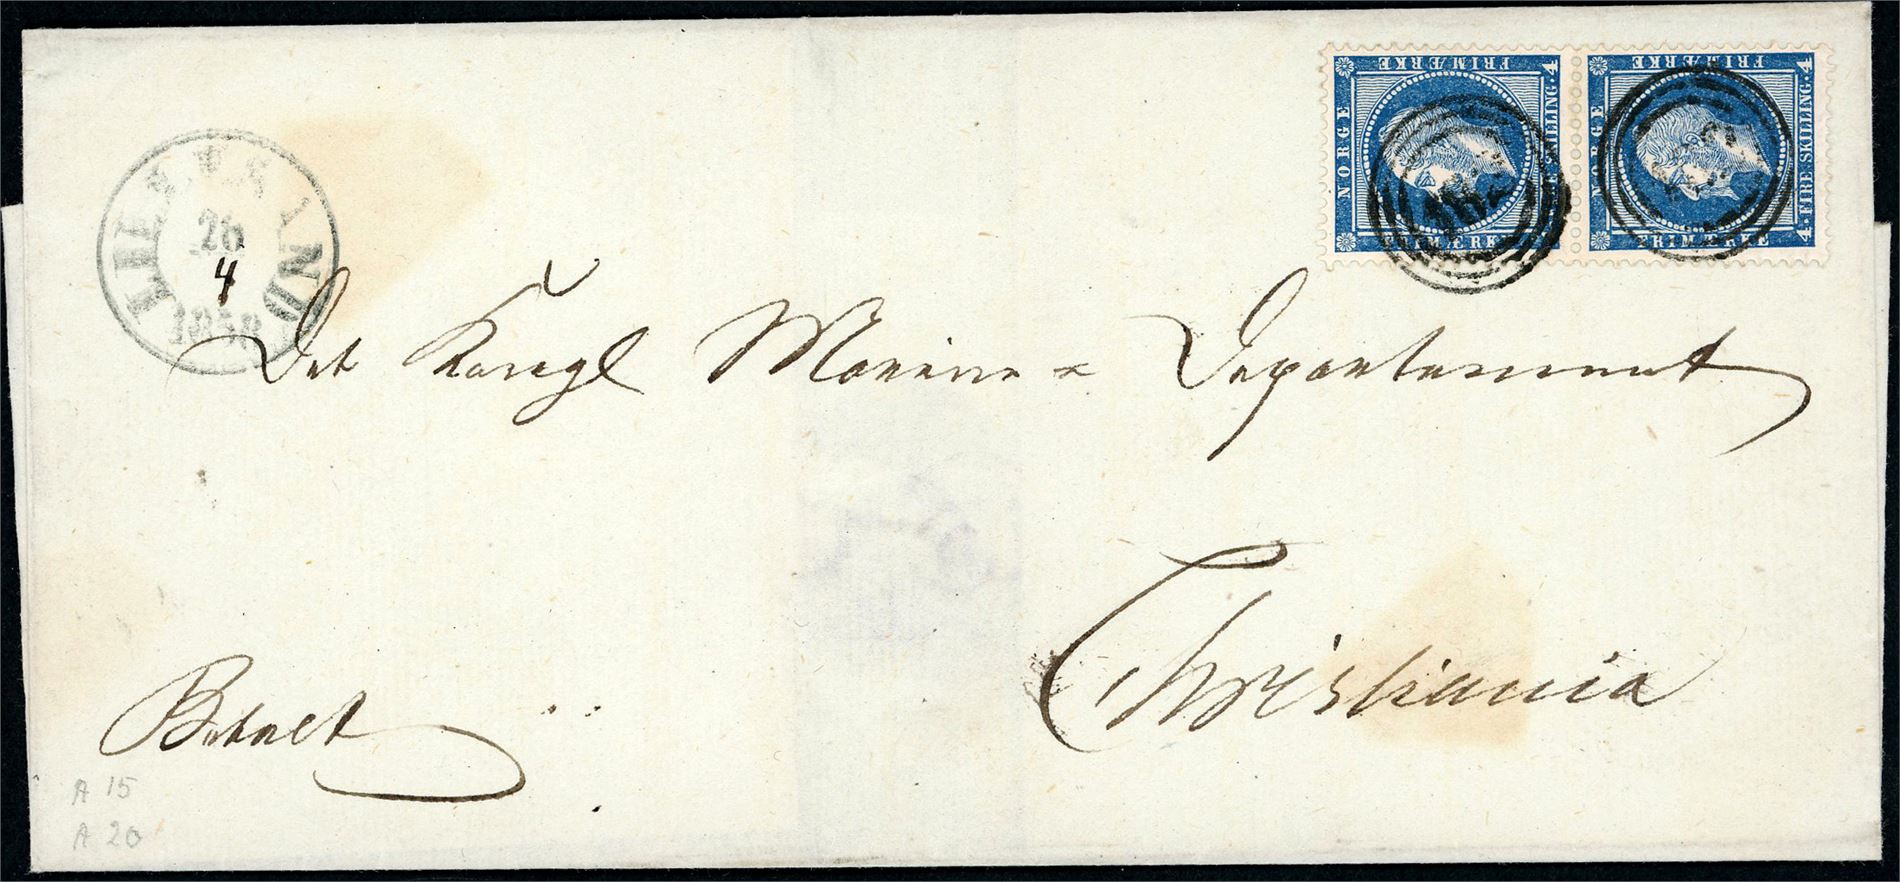 NORGE FRIMÆRKE FIRE SKILLING 4 FRIMÆRKE
NORGE FRIMÆRKE 4 FIRE SKILLING 4 FRIMÆRKE
26
4
1858
Det Kongl Marine = Departement
Christiania
Betalt
A 15
A 20